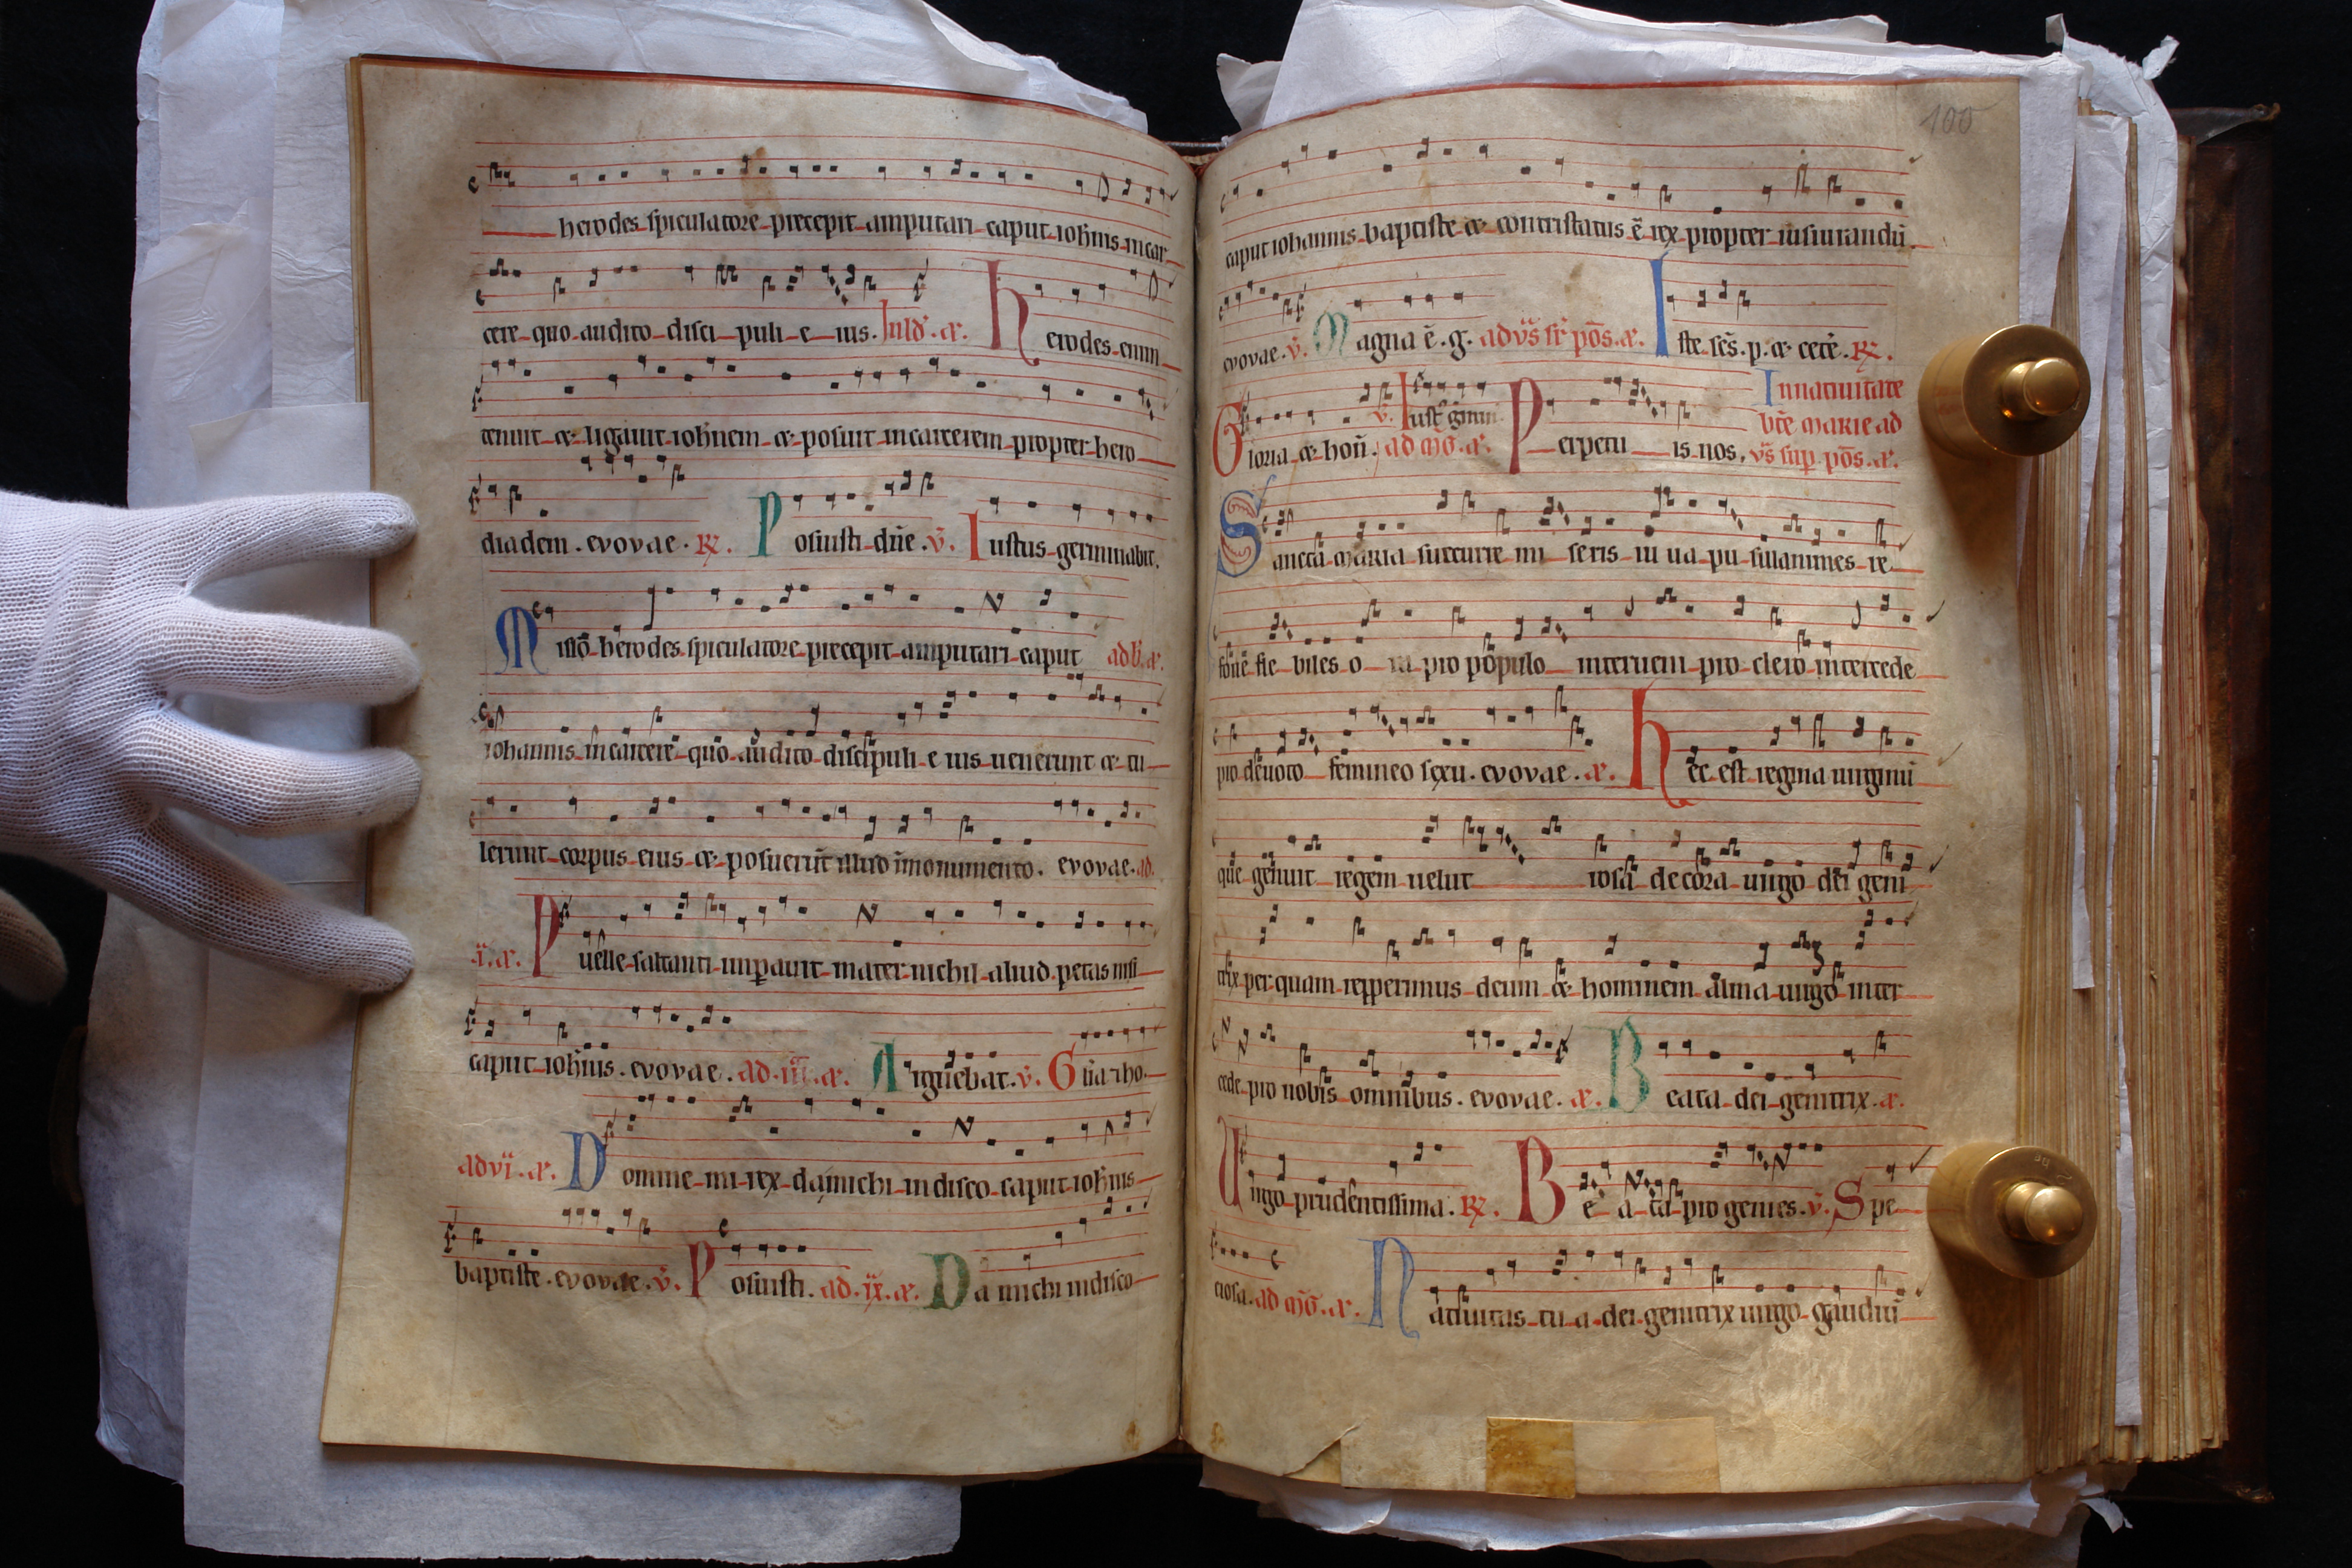 herodes spiculatore precepit amputari caput ioh̄nis in car
cere quo audito disci puli e ius. In ld'. a᷒. Herodes enim
tenuit et ligauit ioh̄nem et posuit in carcerem propter hero
diadem. evovae. R̄. Posuisti dn̄e. v̄. Iustus germinabit.
Misso herodes spiculatore precepit amputari caput ad b'. a᷒.
iohannis in carcere quo audito discipuli e ius uenerunt et tu
lerunt corpus eius et posuerūt illud ī monumento. evovae. ad.
i. a᷒. Puelle saltanti imꝑauit mater nichil aliud petas nisi
caput ioh̄nis. evovae. ad. iii. a᷒. Arguebat. v̄. Gl̄ia et ho
ad vi. a᷒. Domine mi rex da michi in disco caput ioh̄nis
baptiste. evovae. v̄. Posuisti. ad. ix. a᷒. Da michi in disco
100
caput iohannis baptiste et contristatus ē rex propter iusiurandū.
evovae. v̄. Magna ē. g. ad vs̄ sr̄ pōs. a᷒. Iste sc̄s. p. et cetē. R̄.
In natiuitate
Gloria et hoñ. v̄. Iust' gmin ad m̄g. a᷒. Perpetu is nos.
bt̄e marie ad
vs̄ sup pōs. a᷒.
Sancta maria succurre mi seris iu ua pu sillanimes re
foue fle biles o ra pro populo interueni pro clero intercede
pro deuoto femineo sexu. evovae. a᷒. Hec est regina uirginū
que genuit regem uelut rosa decora uirgo dei geni
trix per quam repperimus deum et hominem alma uirgo inter
cede pro nobis omnibus. evovae. a᷒. Beata dei genitrix. a᷒.
Uirgo prudentissima. R̄. Be a ta pro genies. v̄. Spe
ciosa. ad m̄g. a᷒. Natiuitas tu a dei genitrix uirgo gaudiū